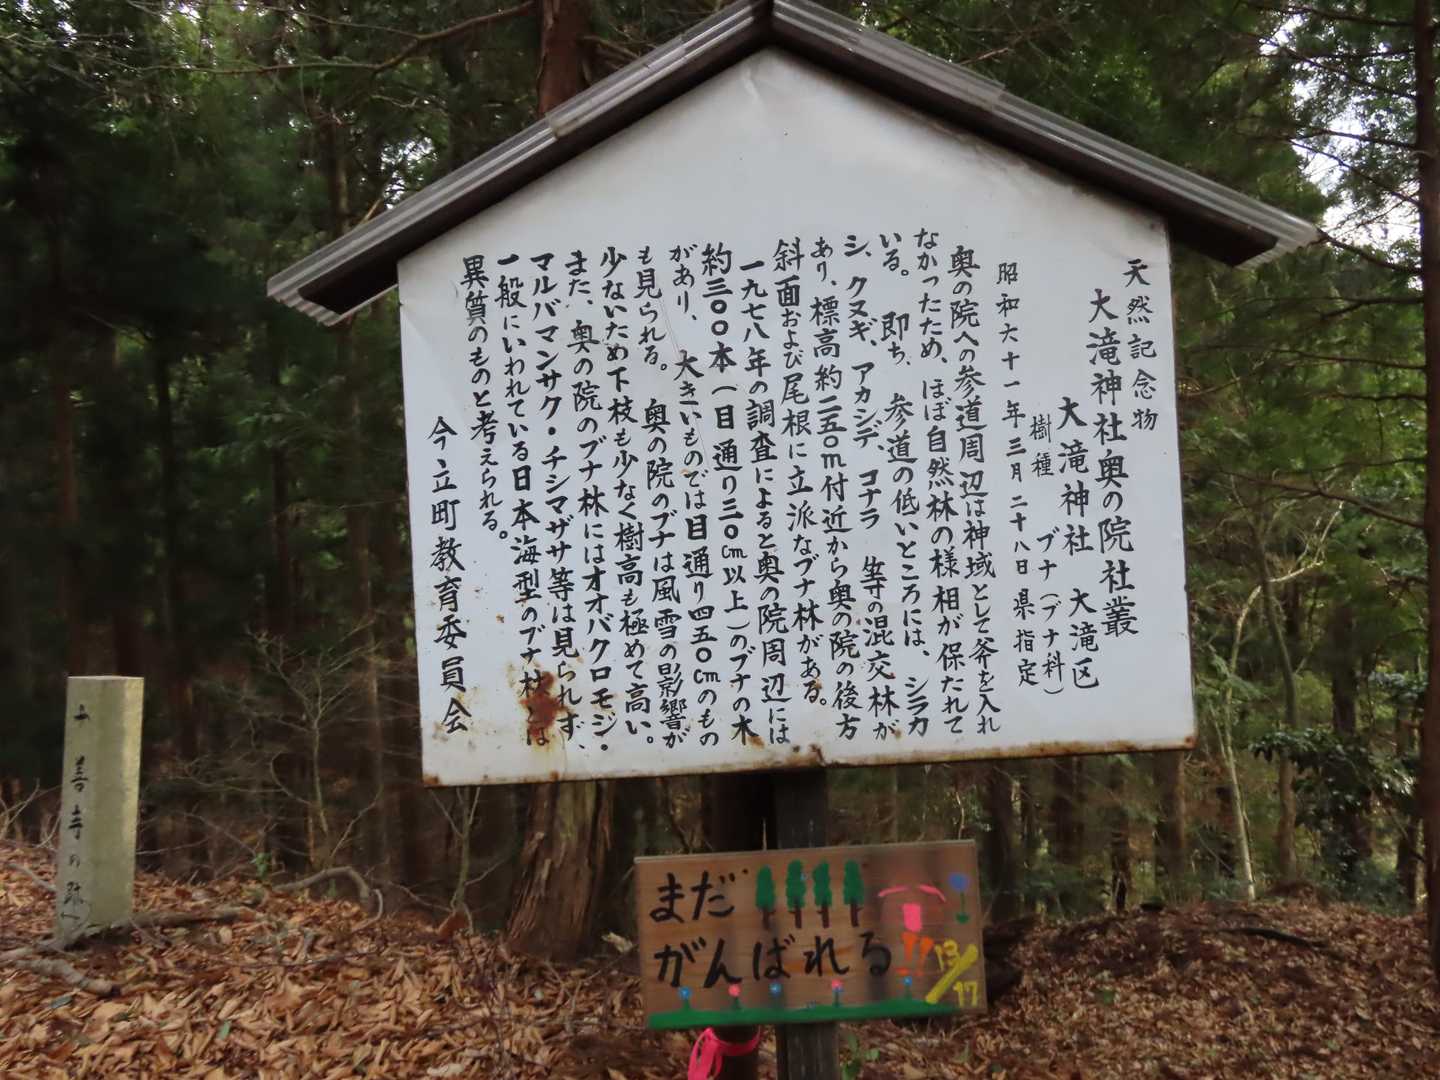 天然記念物
大滝神社奥の院社叢
大滝神社 大滝区
樹種 ブナ（ブナ科）
昭和六十一年三月二十八日県指定
奥の院への参道周辺は神域として斧を入れ
なかったため、ほぼ自然林の様相が保たれて
いる。即ち、参道の低いところには、シラカ
シ、クヌギ、アカシデ、コナラ 等の混交林が
あり、標高約二五〇m付近から奥の院の後方
斜面および尾根に立派なブナ林がある。
一九七八年の調査によると奥の院周辺には
約三〇〇本（目通り三〇cm以上）のブナの木
があり、大きいものでは目通り四五〇cmのもの
も見られる。奥の院のブナは風雪の影響が
少ないため下枝も少なく樹高も極めて高い。
また、奥の院のブナ林にはオオバクロモジ・
マルバマンサク・チシマザサ等は見られず、
一般にいわれている日本海型のブナ林とは
異質のものと考えられる。
今立町教育委員会
善寺の跡
まだ
がんばれる!! 13/17